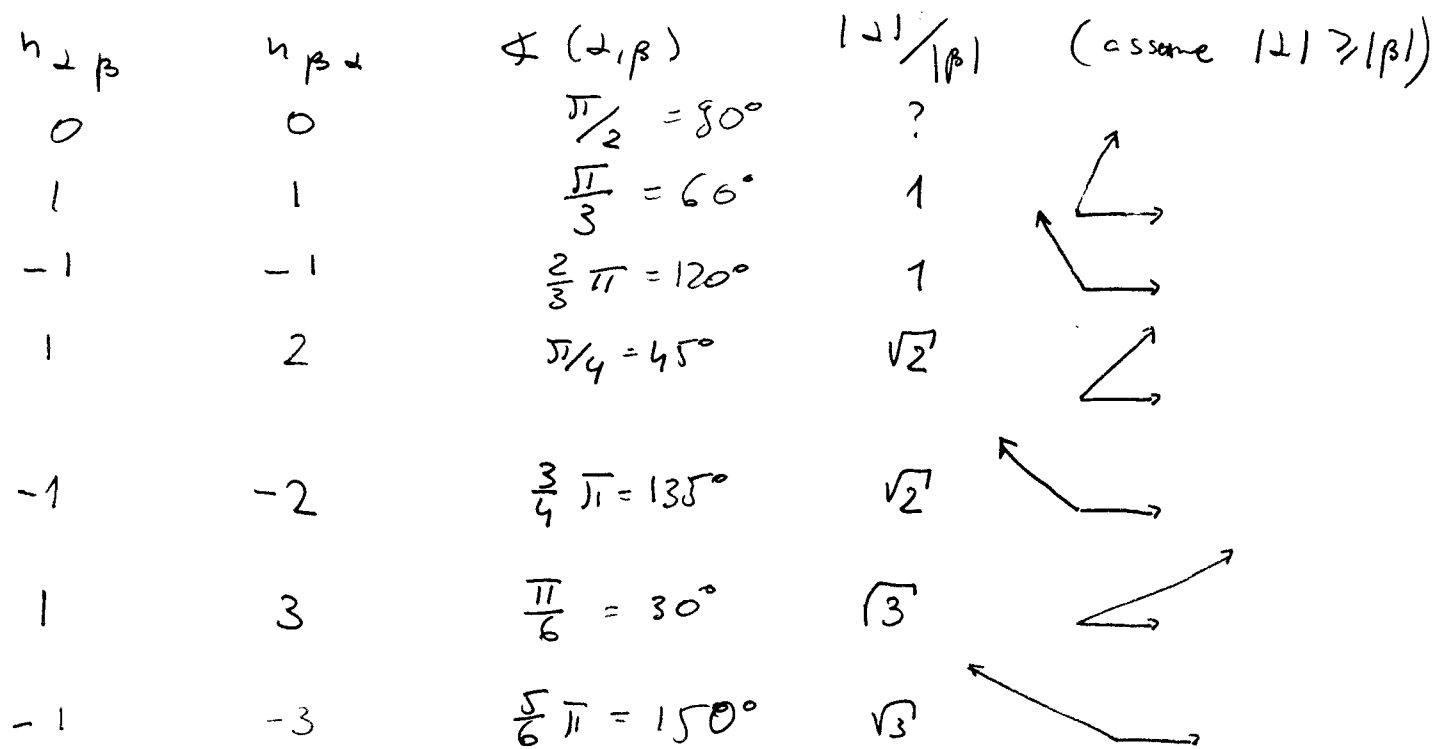 n_αβ n_βα ∢ (α,β) |α|/|β| (assume |α| ≥ |β|)
0 0 π/2 = 90° ?
1 1 π/3 = 60° 1
-1 -1 2/3 π = 120° 1
1 2 π/4 = 45° √2
-1 -2 3/4 π = 135° √2
1 3 π/6 = 30° √3
-1 -3 5/6 π = 150° √3